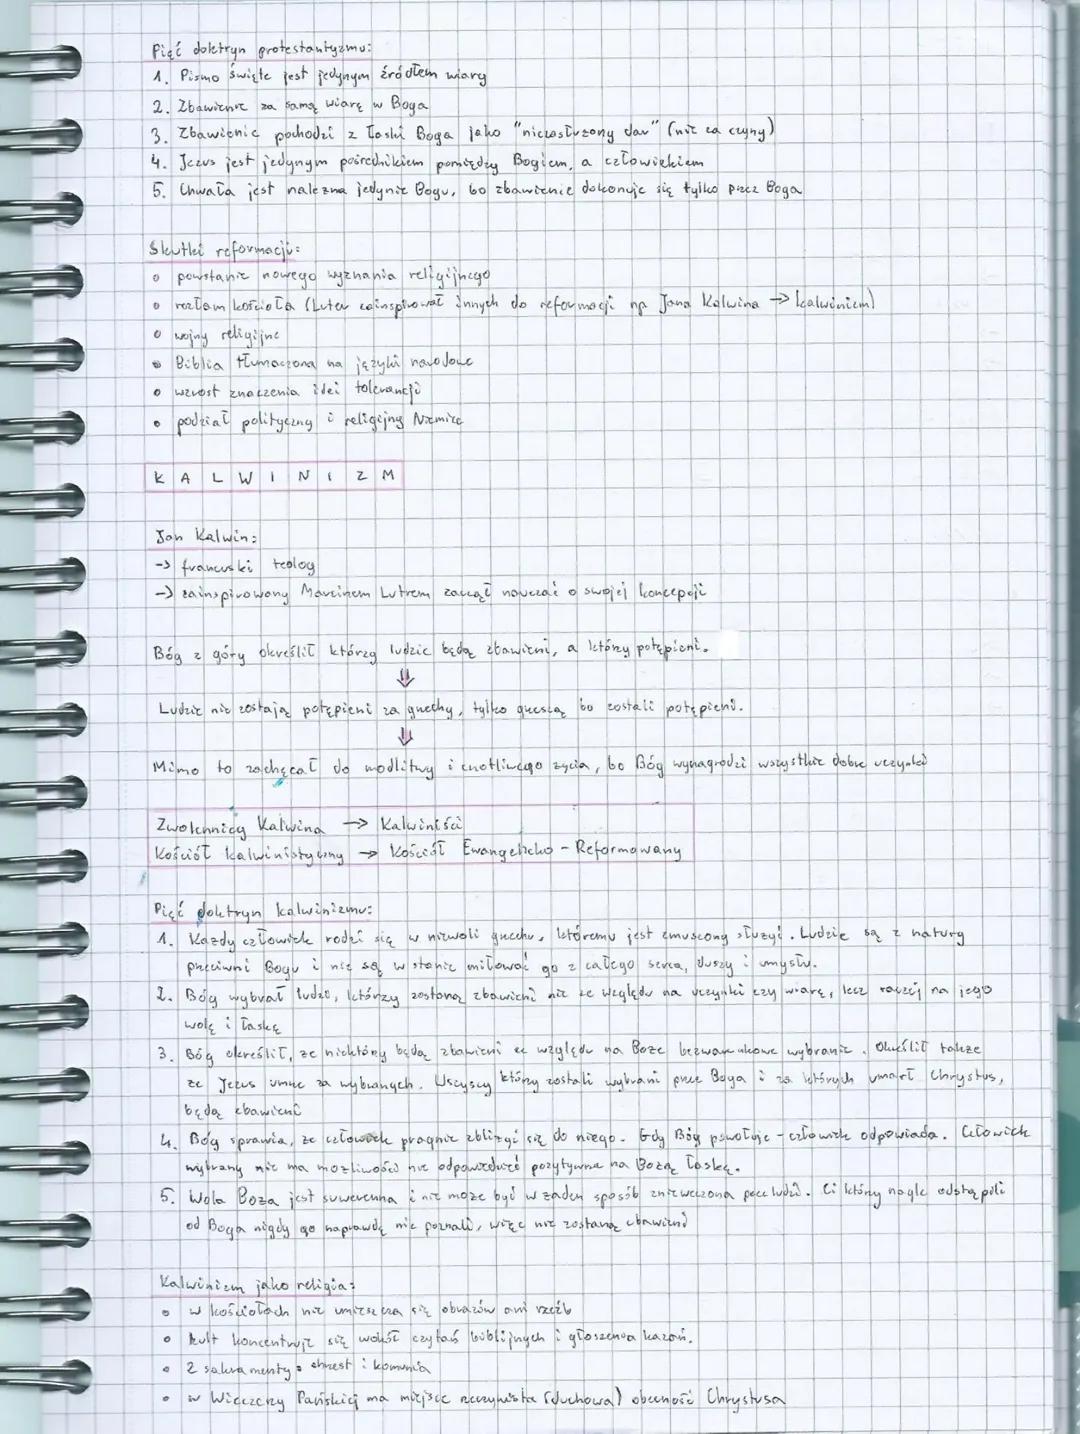 Pięć doktryn protestantyzmu:
1. Pismo święte jest jedynym źródłem wiary
2. Zbawienie za samą wiarę w Boga
3. Zbawienie pochodzi z łaski Boga jako "niezasłużony dar" (nie za czyny)
4. Jezus jest jedynym pośrednikiem pomiędzy Bogiem, a człowiekiem
5. Chwała jest należna jedynie Bogu, bo zbawienie dokonuje się tylko przez Boga
Skutki reformacji:
• powstanie nowego wyznania religijnego
• rozłam kościoła (Luter zainspirował innych do reformacji np Jana Kalwina → kalwinizm)
• wojny religijne
• Biblia tłumaczona na języki narodowe
• wzrost znaczenia idei tolerancji
• podział polityczny i religijny Niemiec
KALWINIZM
Jan Kalwin:
→ francuski teolog
→ zainspirowany Marcinem Lutrem zaczął nauczać o swojej koncepcji
Bóg z góry określił którzy ludzie będą zbawieni, a którzy potępieni.
⇓
Ludzie nie zostają potępieni za grzechy, tylko grzeszą bo zostali potępieni.
⇓
Mimo to zachęcał do modlitwy i cnotliwego życia, bo Bóg wynagrodzi wszystkie dobre uczynki
Zwolennicy Kalwina → Kalwiniści
Kościół kalwinistyczny → Kościół Ewangelicko - Reformowany
Pięć doktryn kalwinizmu:
1. Każdy człowiek rodzi się w niewoli grzechu, któremu jest zmuszony służyć. Ludzie są z natury
przeciwni Bogu i nie są w stanie miłować go z całego serca, duszy i umysłu.
2. Bóg wybrał ludzi, którzy zostaną zbawieni nie ze względu na uczynki czy wiarę, lecz raczej na jego
wolę i łaskę
3. Bóg określił, że niektórzy będą zbawieni ze względu na Boże bezwarunkowe wybranie. Określił także
że Jezus umrze za wybranych. Wszyscy którzy zostali wybrani przez Boga i za których umarł Chrystus,
będą zbawieni
4. Bóg sprawia, że człowiek pragnie zbliżyć się do niego. Gdy Bóg powołuje - człowiek odpowiada. Człowiek
wybrany nie ma możliwości nie odpowiedzieć pozytywnie na Bożą łaskę.
5. Wola Boża jest suwerenna i nie może być w żaden sposób zniweczona przez ludzi. Ci którzy nagle odstąpili
od Boga nigdy go naprawdę nie poznali, więc nie zostaną zbawieni
Kalwinizm jako religia:
• w kościołach nie umieszcza się obrazów ani rzeźb
• kult koncentruje się wokół czytań biblijnych i głoszenia kazań.
• 2 sakramenty: chrzest i komunia
• w Wieczerzy Pańskiej ma miejsce rzeczywista (duchowa) obecność Chrystusa